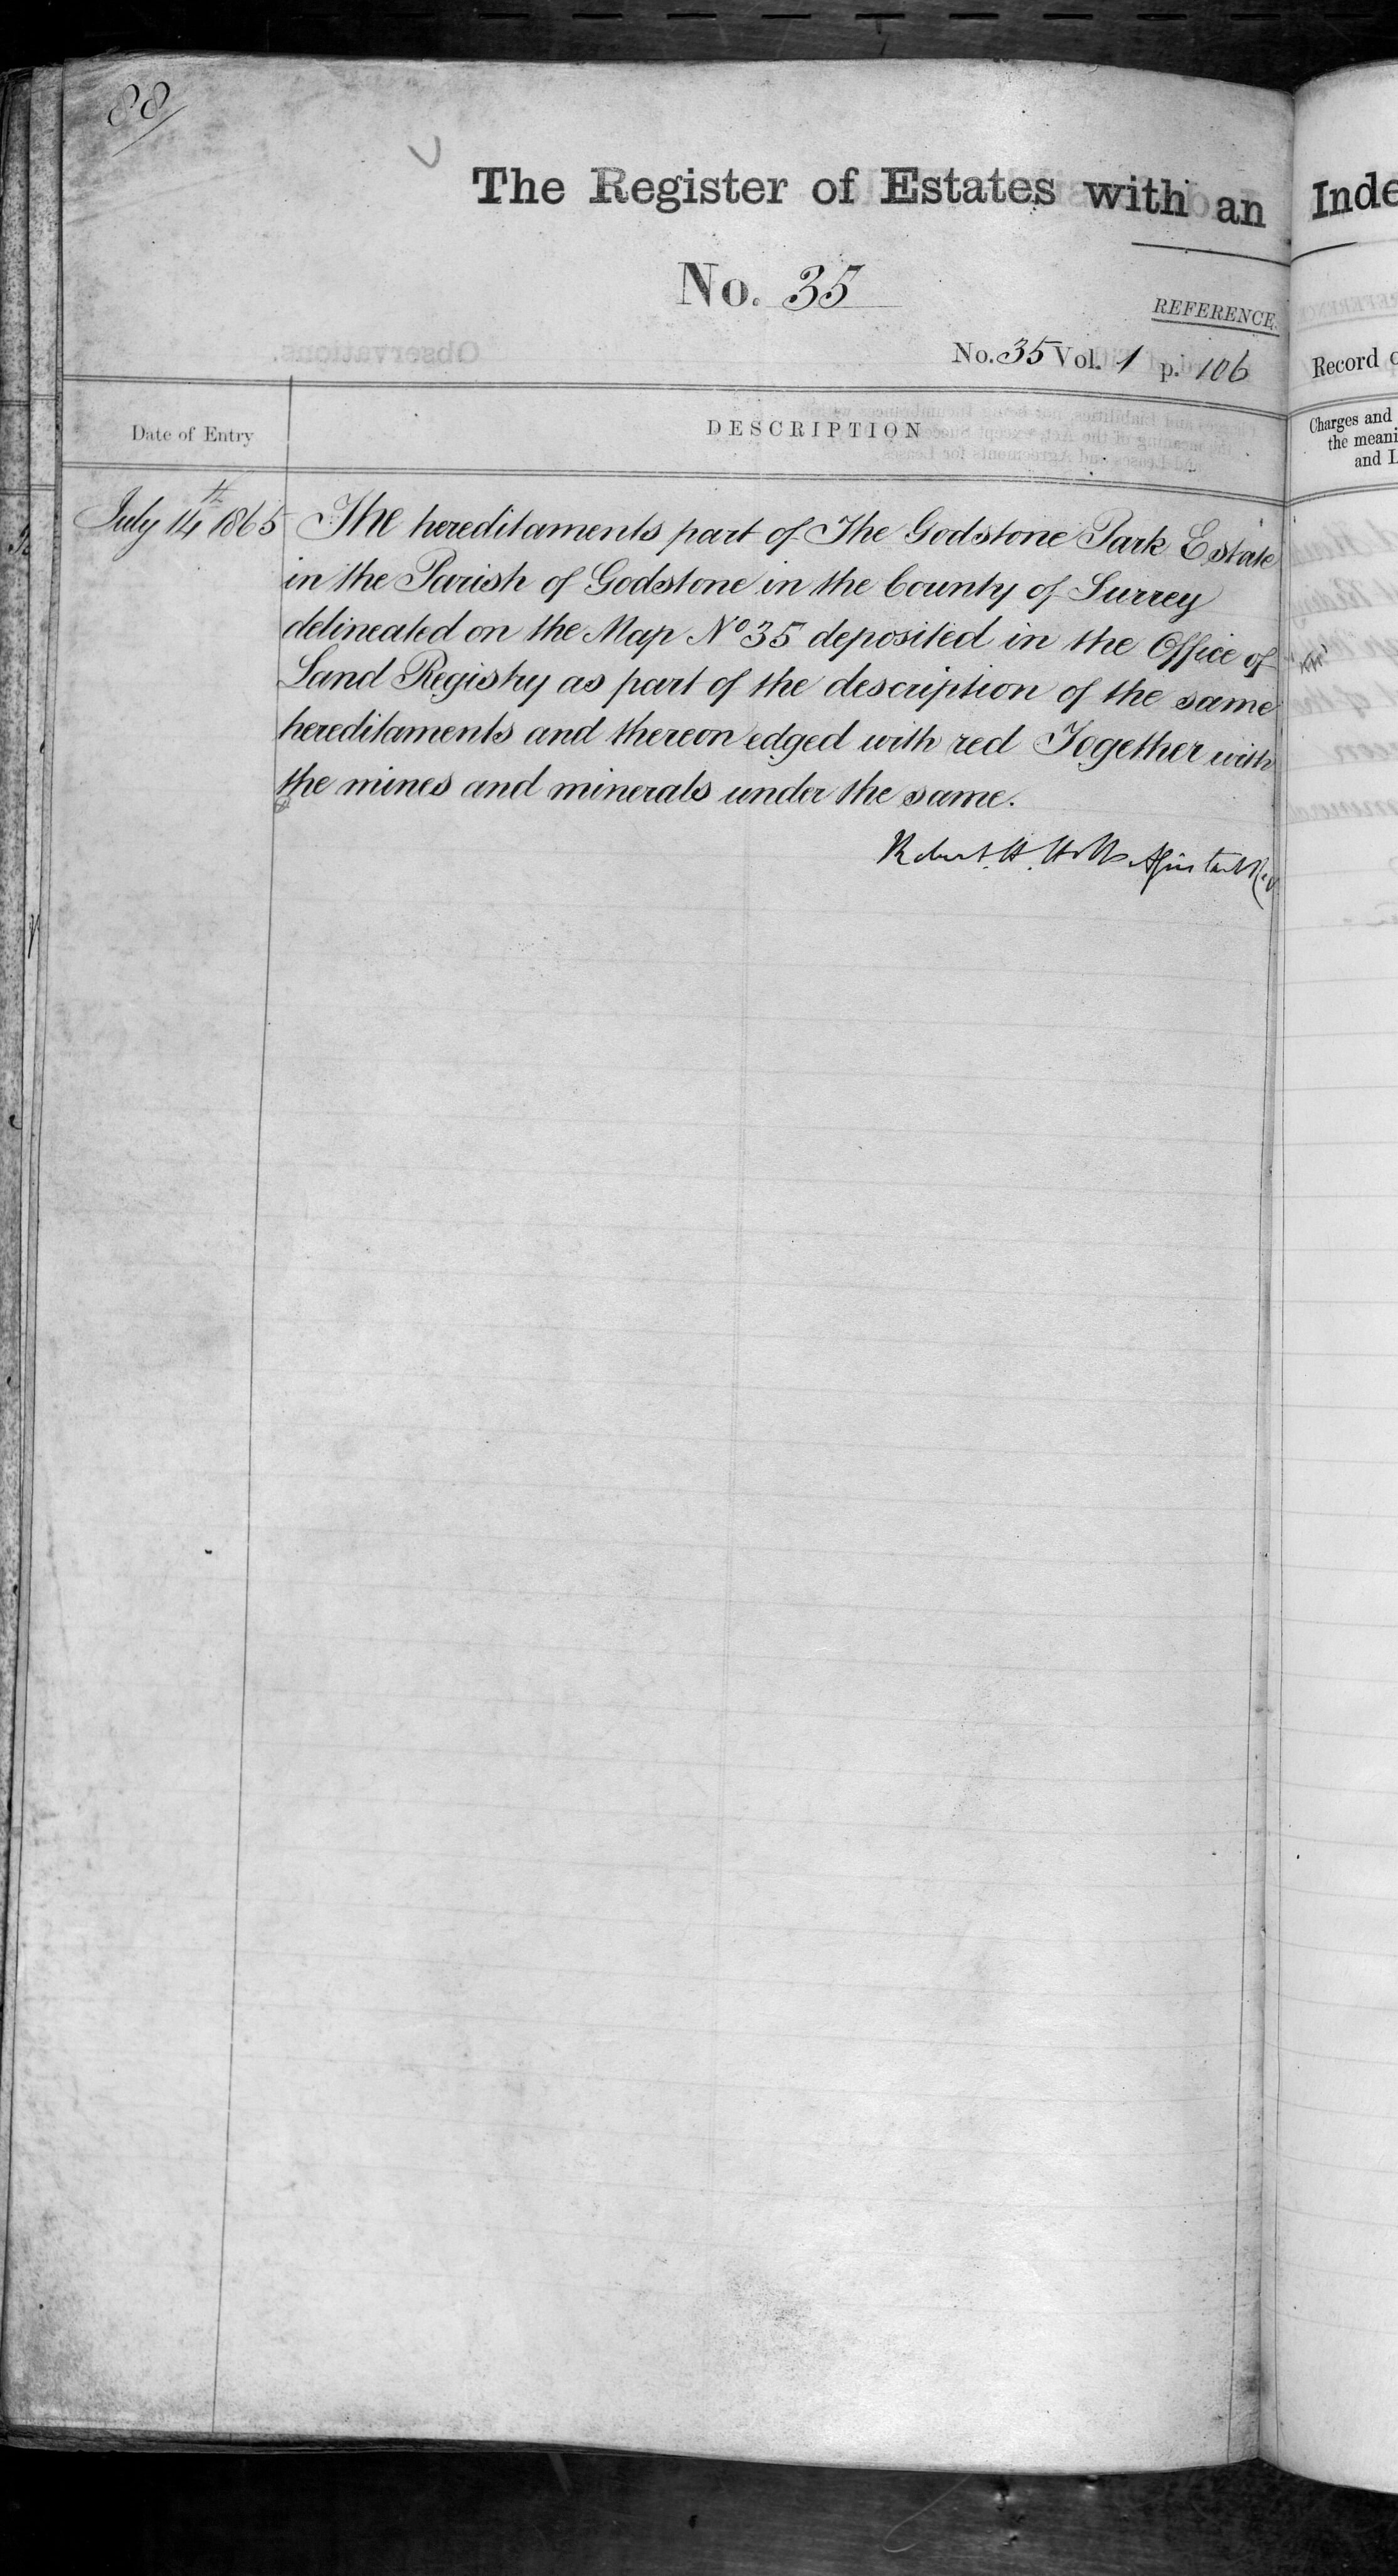 88
The Register of Estates with an Inde
No. 35
REFERENCE.
No. 35 Vol. 1 p. 106
Record o
Date of Entry
DESCRIPTION
Charges and
the meani
and L
July 14th 1865
The hereditaments part of The Godstone Park Estate
in the Parish of Godstone in the County of Surrey
delineated on the Map No 35 deposited in the Office of
Land Registry as part of the description of the same
hereditaments and thereon edged with red Together with
the mines and minerals under the same.
Robert. H. Holt Assistant Reg